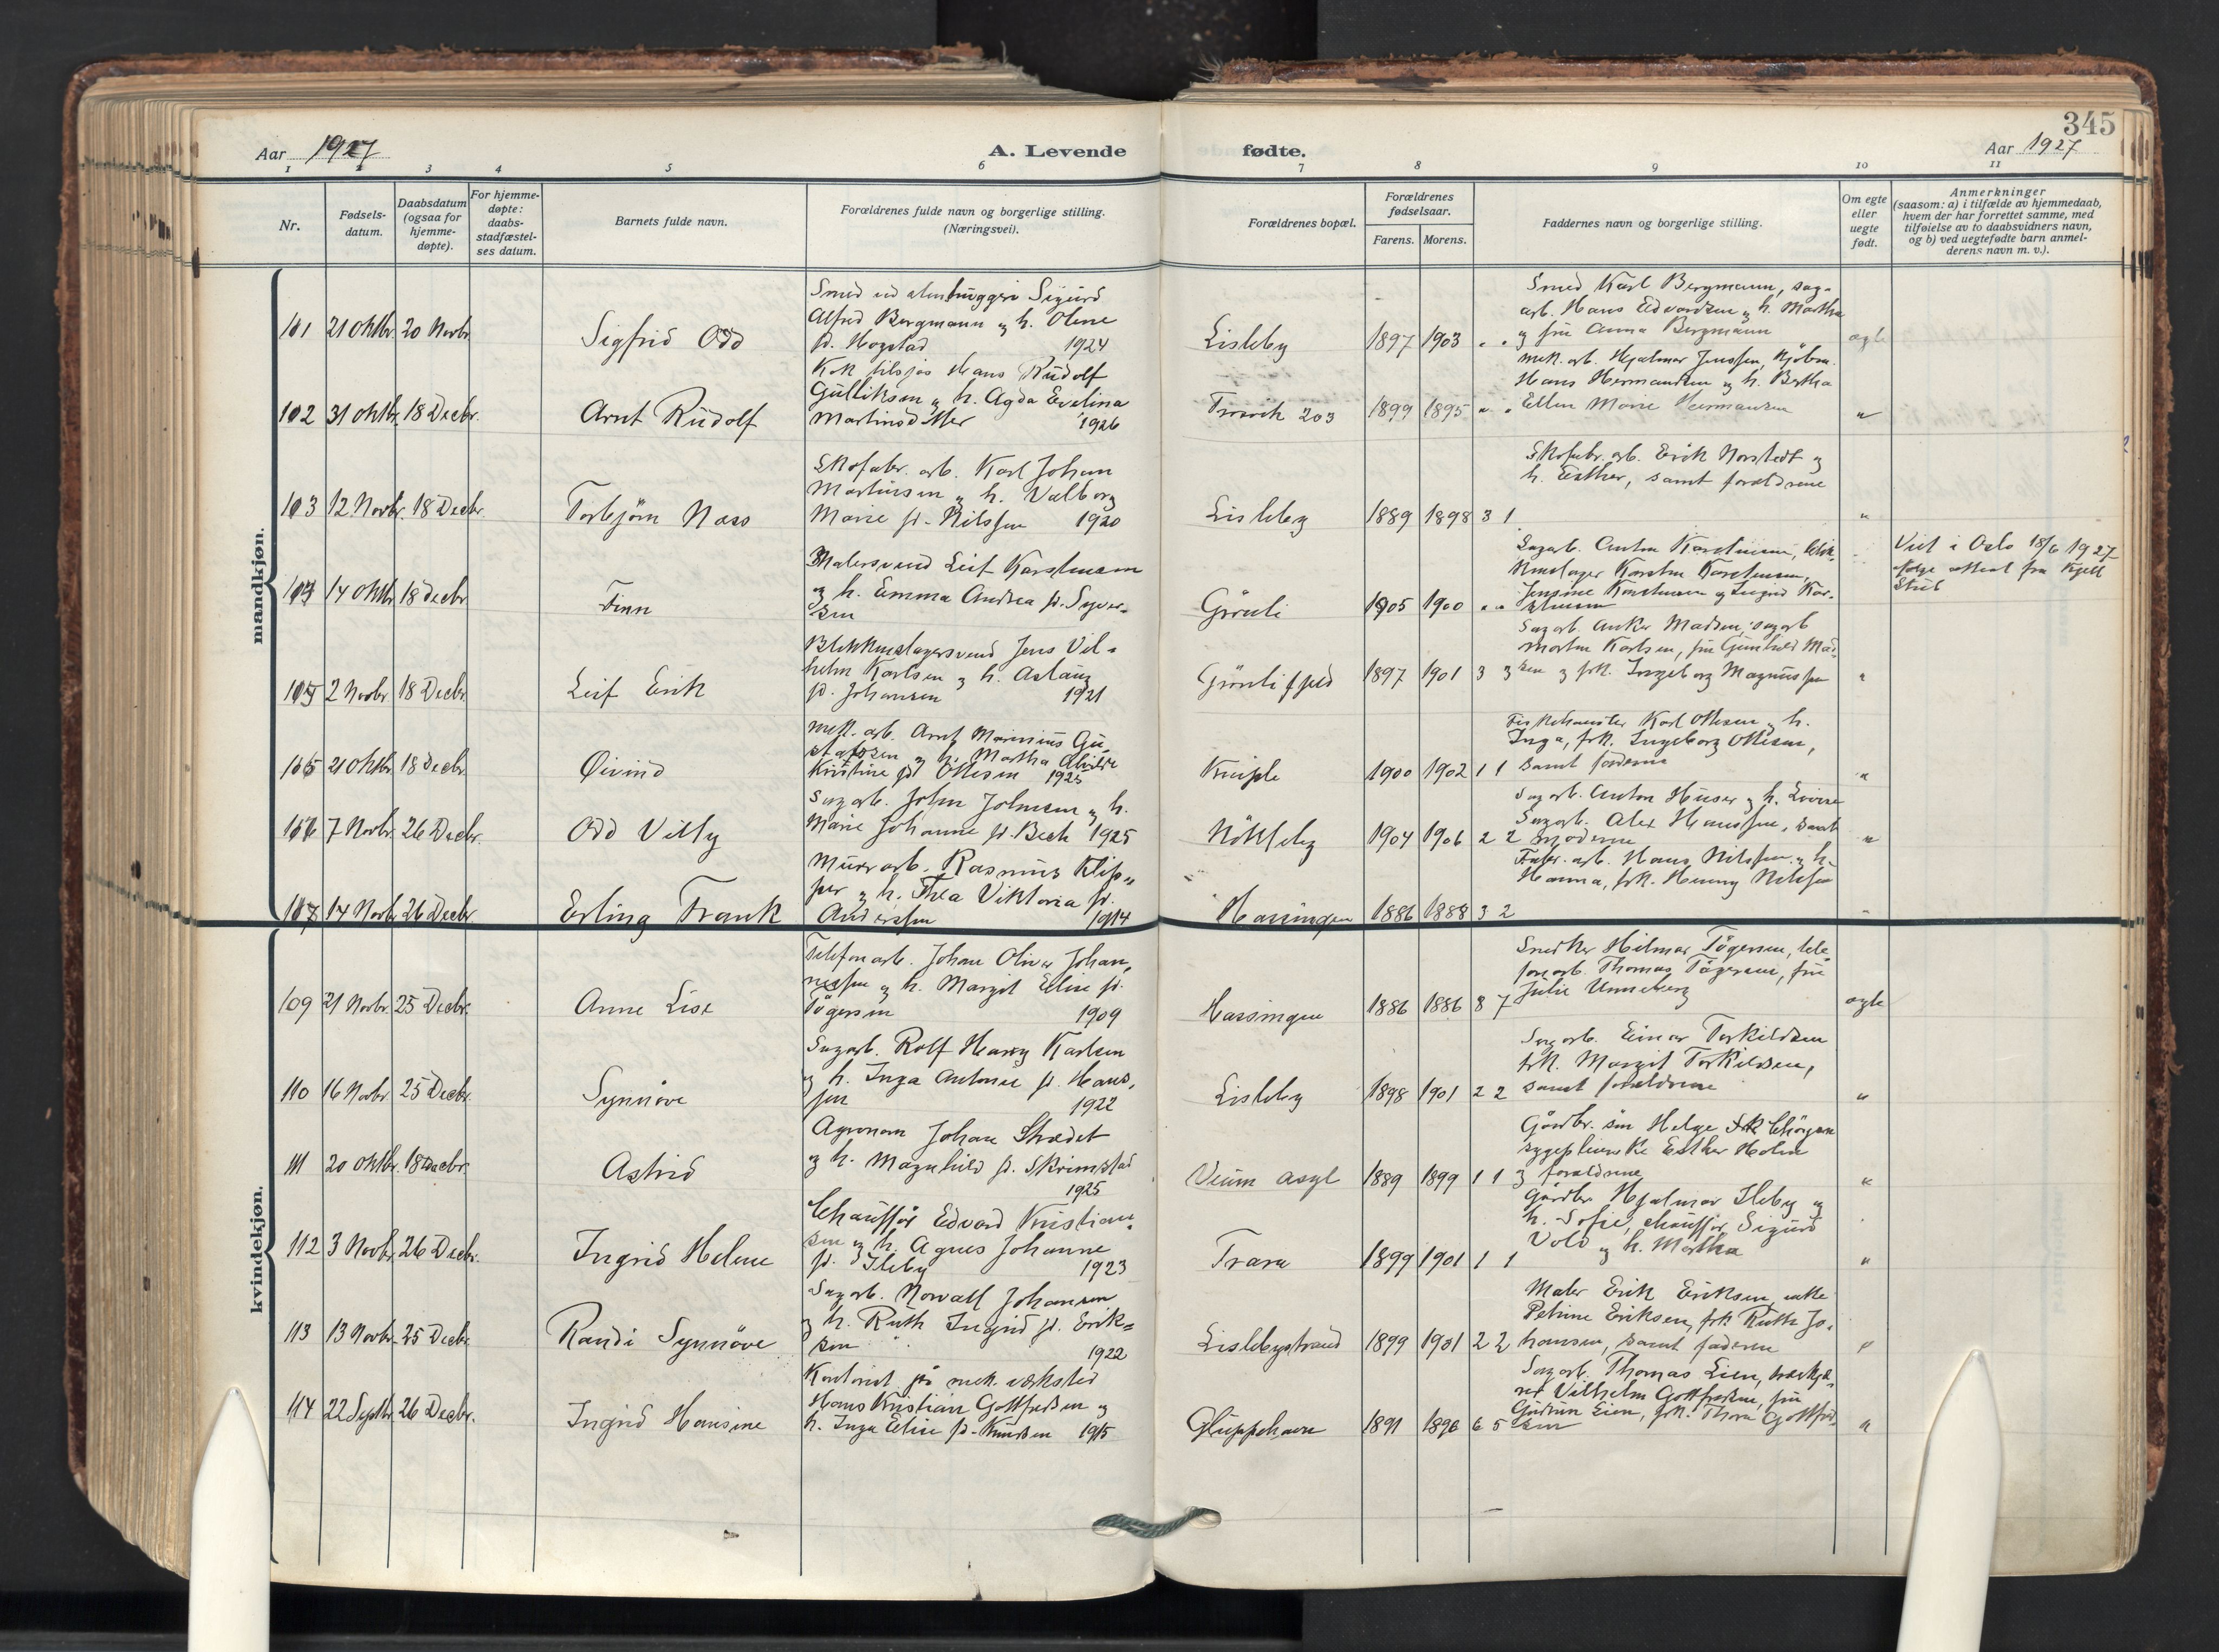 345
Aar 1927
A. Levende
fødte.
Aar 1927
1 2 3 4 5 6 7 8 9 10 11
Nr.
Fødsels-
datum.
Daabsdatum
(ogsaa for
hjemme-
døpte).
For hjemme-
døpte:
daabs-
stadfæstel-
ses datum.
Barnets fulde navn.
Forældrenes fulde navn og borgerlige stilling.
(Næringsvei).
Forældrenes bopæl.
Forældrenes
fødselsaar.
Farens. Morens.
Faddernes navn og borgerlige stilling.
Om egte
eller
uegte
født.
Anmerkninger
(saasom: a) i tilfælde av hjemmedaab,
hvem der har forrettet samme, med
tilføielse av to daabsvidners navn,
og b) ved uegtefødte barn anmel-
derens navn m. v.).
mandkjøn.
101 21 Oktbr. 20 Novbr. Sigfrid Odd
Smed ved stenhuggeri Sigurd
Alfred Bergmann og h. Olene
f. Hogstad 1924
Lisleby 1897 1903 " "
Smed Karl Bergmann, sag-
arb. Hans Edvardsen og h. Martha
og fru Anna Bergmann
egte
102 31 Oktbr. 18 Decbr. Arnt Rudolf
Kok tilsjøs Hans Rudolf
Gulliksen og h. Agda Evelina
Martinsdotter 1926
Trosvik 203 1899 1895 " "
mek. arb. Hjalmar Jenssen, kjøbm.
Hans Hermansen og h. Bertha
Ellen Marie Hermansen
"
103 12 Novbr. 18 Decbr. Torbjørn Næss
Skofabr. arb. Karl Johan
Martinsen og h. Valborg
Marie f. Nilssen 1920
Lisleby 1889 1898 3 1
Skofabr. arb. Erik Norstedt og
h. Esther, samt forældrene
"
14 Oktbr. 18 Decbr Finn
Malersvend Leif Karstensen
og h. Emma Andrea f. Syver-
sen
Grønli 1905 1900 " "
Sagarb. Anton Karstensen, blik-
kenslager Karsten Karstensen,
Jensine Karstensen og Ingrid Kar-
stensen
Viet i Oslo 18/6 1927
ifølge attest fra Kjell
Stub
2 Novbr. 18 Decbr. Leif Erik
Blikkenslagersvend Jens Vil-
helm Karlsen og h. Aslaug
f. Johansen 1921
Grønlifjeld 1897 1901 3 3
Sagarb. Anker Madsen, sagarb
Martin Karlsen, fru Gunhild Mad-
sen og frk. Ingeborg Magnussen
"
21 Oktbr. 18 Decbr. Øivind
mek. arb. Arnt Marinius Gu-
stavsen og h. Martha Alvilde
Kristine f. Ottesen 1925
Kniple 1900 1902 1 1
Fiskehandler Karl Ottesen og h.
Inga, frk. Ingeborg Ottesen,
samt faderen
"
7 Novbr. 26 Decbr. Odd Villy
Sagarb. John Johnsen og h.
Marie Johanne f. Bech 1925
Nøkleby 1904 1906 2 2
Sagarb. Anton Huser og h. Lovise
Sagarb. Alex Hanssen, samt
moderen
"
14 Novbr. 26 Decbr. Erling Frank
Murerarb. Rasmus Klip-
per og h. Thea Viktoria f.
Anderssen 1914
Hassingen 1886 1888 3 2
Fabr. arb. Hans Nilssen og h.
Hanna, frk. Henny Nilssen
"
kvindekjøn.
109 21 Novbr. 25 Decbr. Anne Lise
Telefonarb. Johan Oliver Johan-
nessen og h. Margit Elise f.
Tögersen 1909
Hassingen 1886 1886 8 7
Snedker Hilmar Tögersen, tele-
fonarb. Thomas Tögersen, fru
Julie Unneberg
egte
110 16 Novbr. 25 Decbr. Synnöve
Sagarb. Rolf Harry Karlsen
og h. Inga Antonie f. Hans-
sen 1922
Lisleby 1898 1901 2 2
Sagarb. Einar Torkildsen
frk. Margit Torkildsen,
samt forældrene
"
111 20 Oktbr. 18 Decbr. Astrid
Agronom Johan Strædet
og h. Magnhild f. Skrimstad
1925
Veum asyl 1889 1899 1 1
Gårdbr. sön Helge
sygepleierske Esther Holm
og forældrene
"
112 3 Novbr. 26 Decbr. Ingrid Helene
Chauffør Edvard Kristian-
sen og h. Agnes Johanne
f. Ileby 1923
Trara 1899 1901 1 1
Gårdbr Hjalmar Ileby og
h. Sofie, chauffør Sigurd
Vold og h. Martha
"
113 13 Novbr. 25 Decbr. Randi Synnöve
Sagarb. Norvall Johansen
og h. Ruth Ingrid f. Erik-
sen 1922
Lislebystrand 1899 1901 2 2
Maler Erik Eriksen, enke
Petrine Eriksen, frk. Ruth Jo-
hansen, samt faderen
"
114 22 Septbr. 26 Decbr. Ingrid Hansine
Kontorist på mek. verksted
Hans Kristian Gottfredsen og
h. Inga Elise f. Knudsen 1915
Gluppehavn 1891 1896 6 5
Sagarb. Thomas Lien,
Vilhelm Gottfredsen, fru
Gudrun Lien, frk. Thora Gottfred-
sen
"